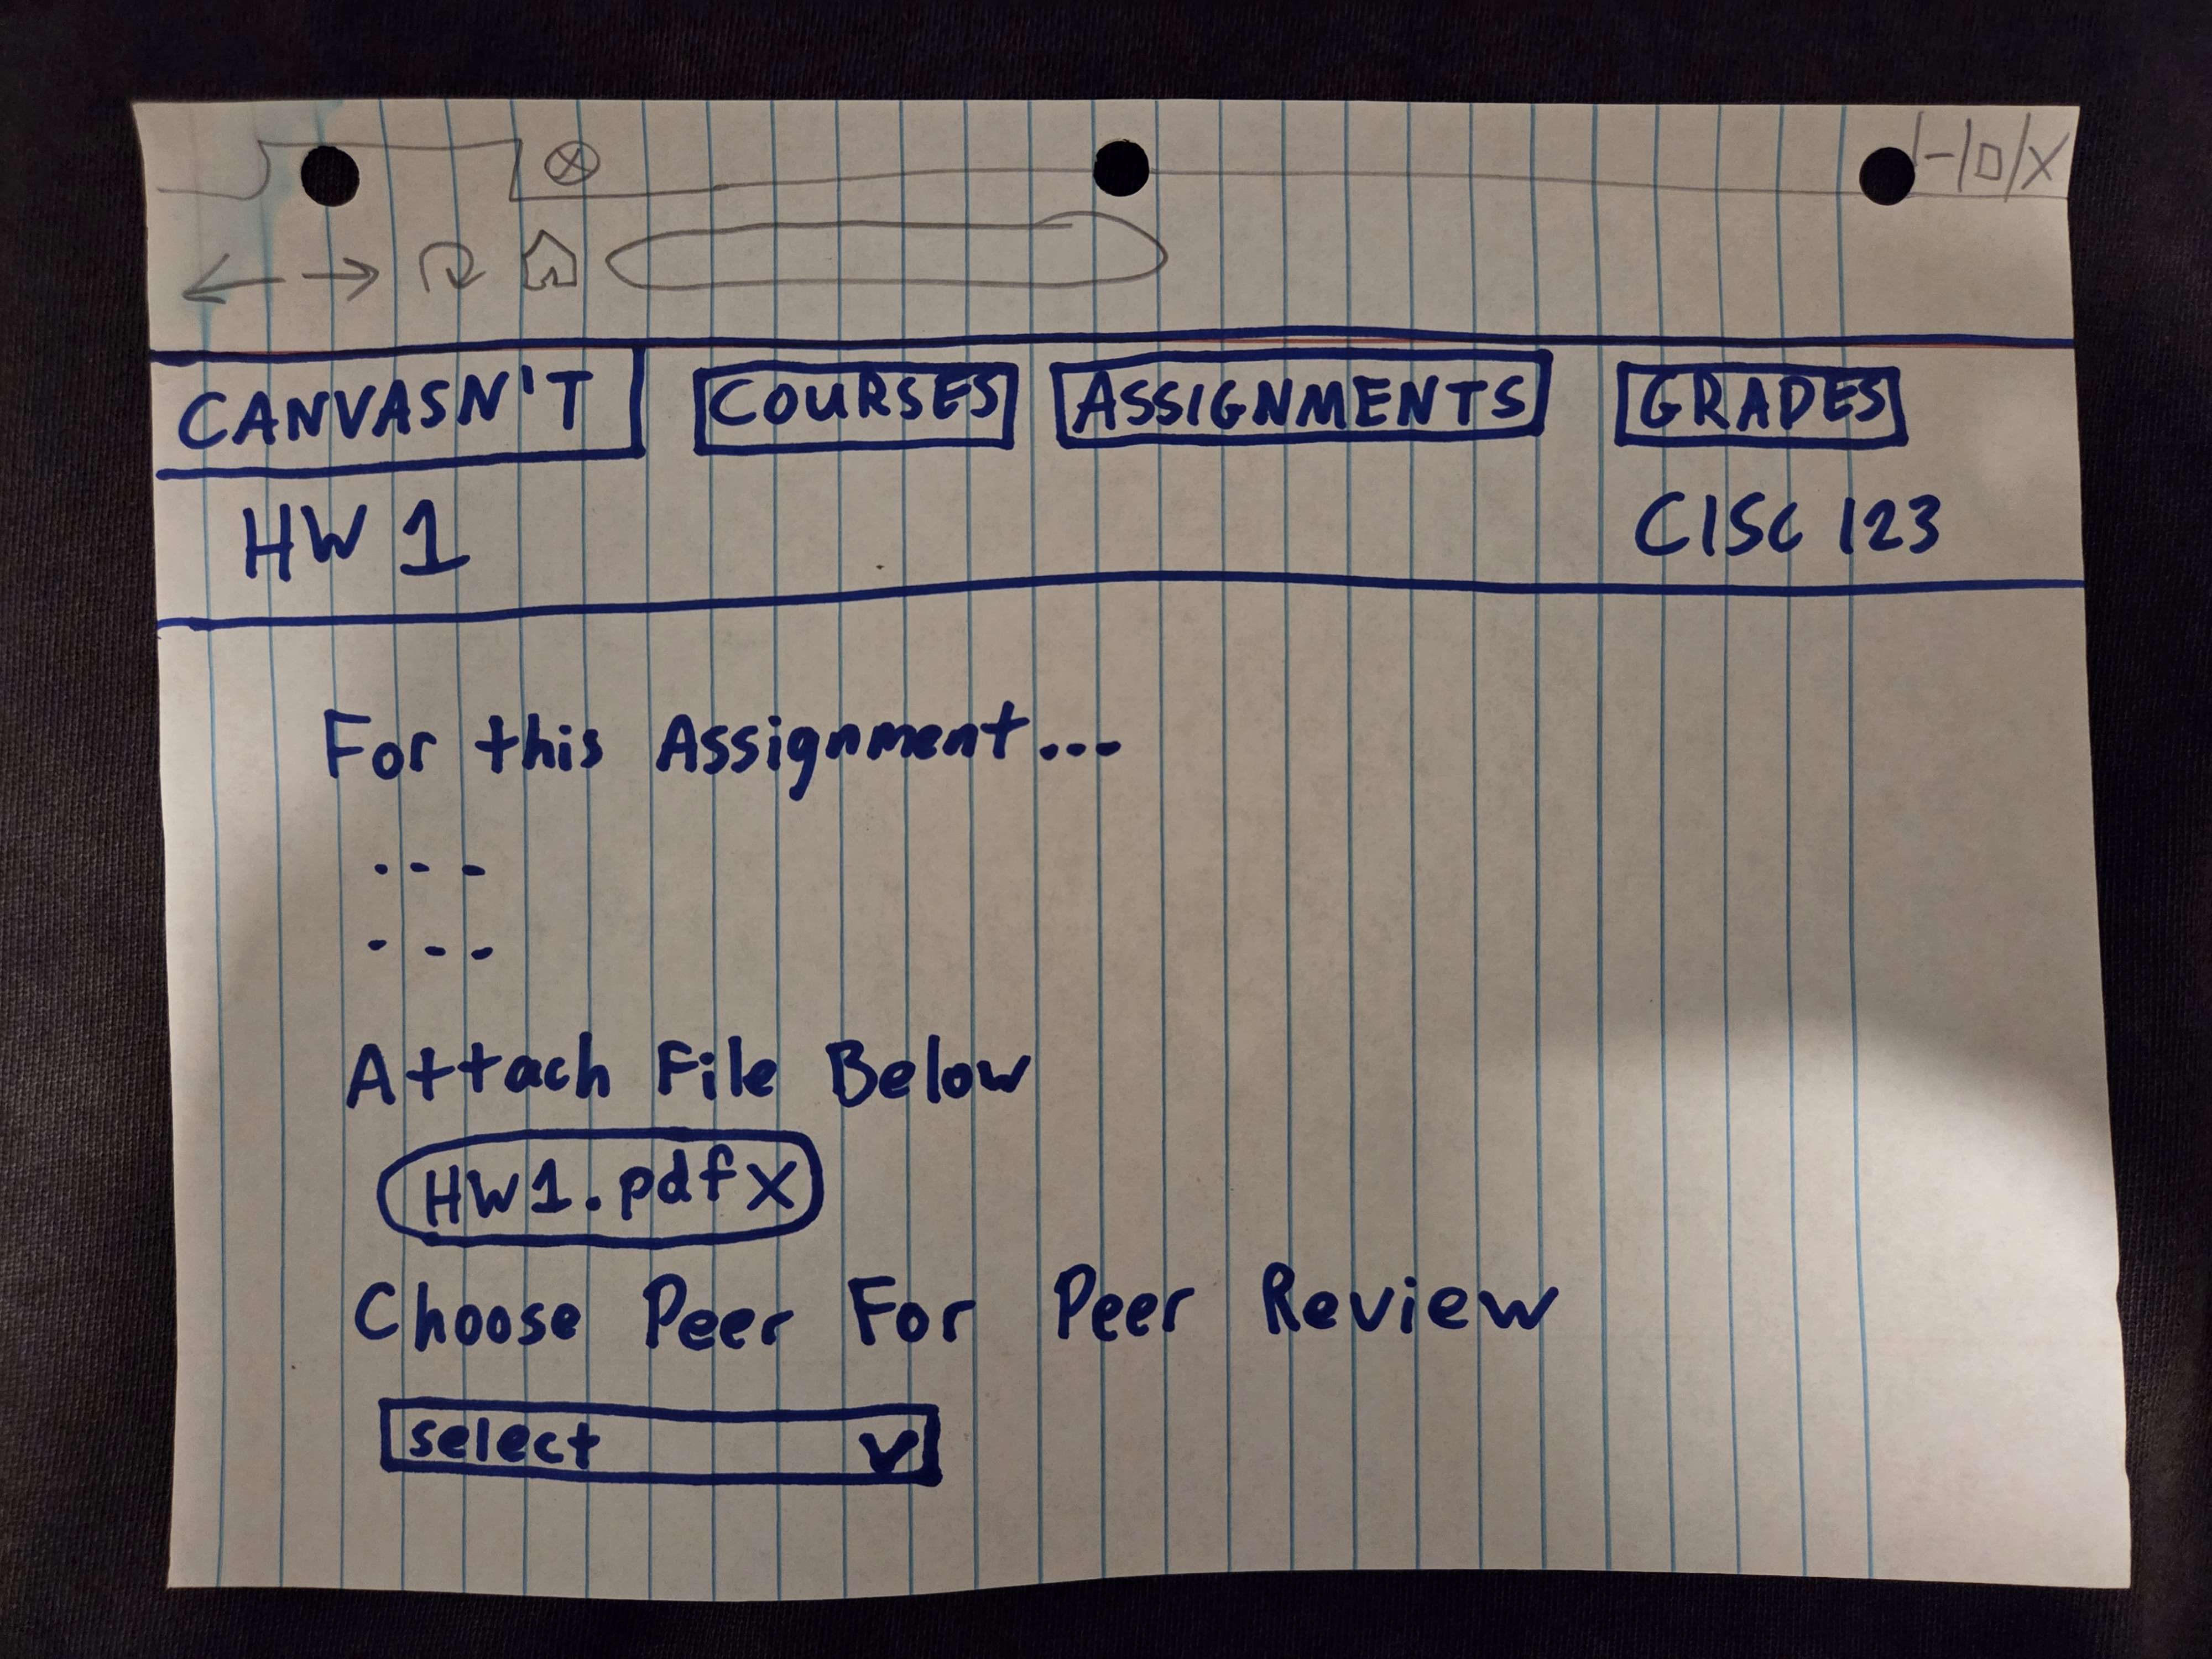 CANVASN'T COURSES ASSIGNMENTS GRADES
HW 1 CISC 123
For this Assignment...
...
...
Attach File Below
HW1.pdf X
Choose Peer For Peer Review
select